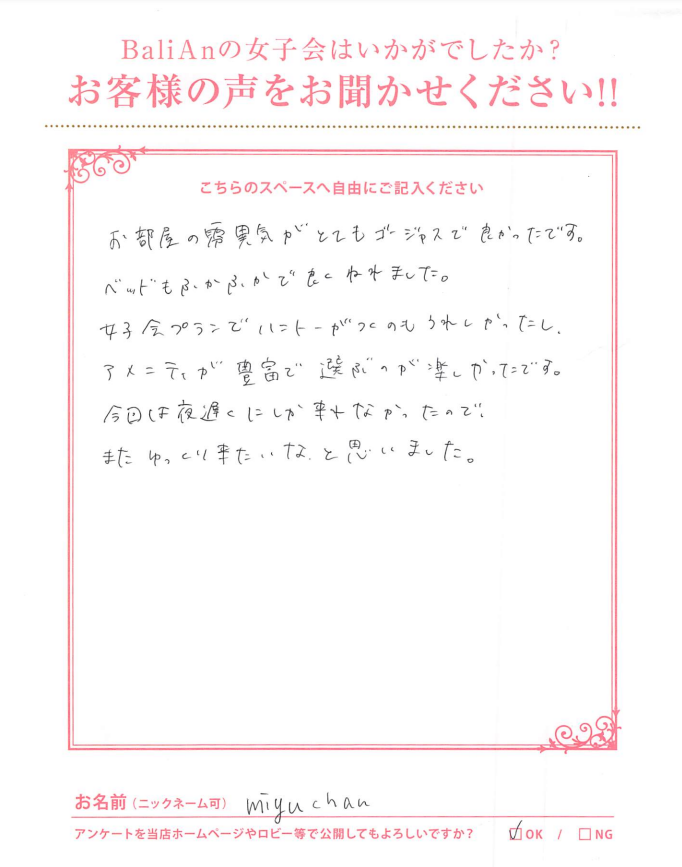 BaliAnの女子会はいかがでしたか?
お客様の声をお聞かせください!!
こちらのスペースへ自由にご記入ください
お部屋の雰囲気がとてもゴージャスで良かったです。
ベッドもふかふかで良くねれました。
女子会プランでハニトーがつくのもうれしかったし、
アメニティが豊富で選ぶのが楽しかったです。
今回は夜遅くにしか来れなかったので、
またゆっくり来たいな、と思いました。
お名前(ニックネーム可) miyuchan
アンケートを当店ホームページやロビー等で公開してもよろしいですか? ☑OK / □NG